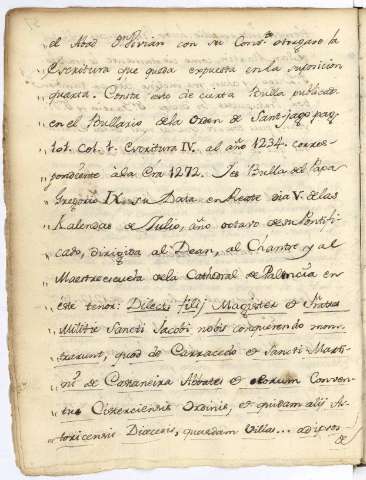 el Abad Dn. Vivian con su Convto. otorgaron la
Escritura que queda expuesta en la suposicion
,, quarta. Consta esto de cierta Bulla publicada
,, en el Bullario de la Orden de Sant-Jago pag.
,, col. 1. Escritura IV. al año 1234. corres-
,, pondiente à la Era 1272. Es Bulla del Papa
,, Gregorio IX. su Data en Reate dia V. de las
,, Kalendas de Julio, año octavo de su Pontifi-
,, cado, dirigida al Dean, al Chantre y al
,, Maestreescuela de la Cathedral de Palencia en
,, este tenor: Dilecti filij Magister et Fratres
,, Militiæ Sancti Jacobi nobis conquerendo mons-
,, trarunt, quod de Carracedo et Sancti Marti-
,, ni de Castaneira Abbates et eorum Conven-
,, tus Cisterciensis Ordinis, et quidam alij As-
,, toricensis Diocesis, quasdam Villas... ad ipsos